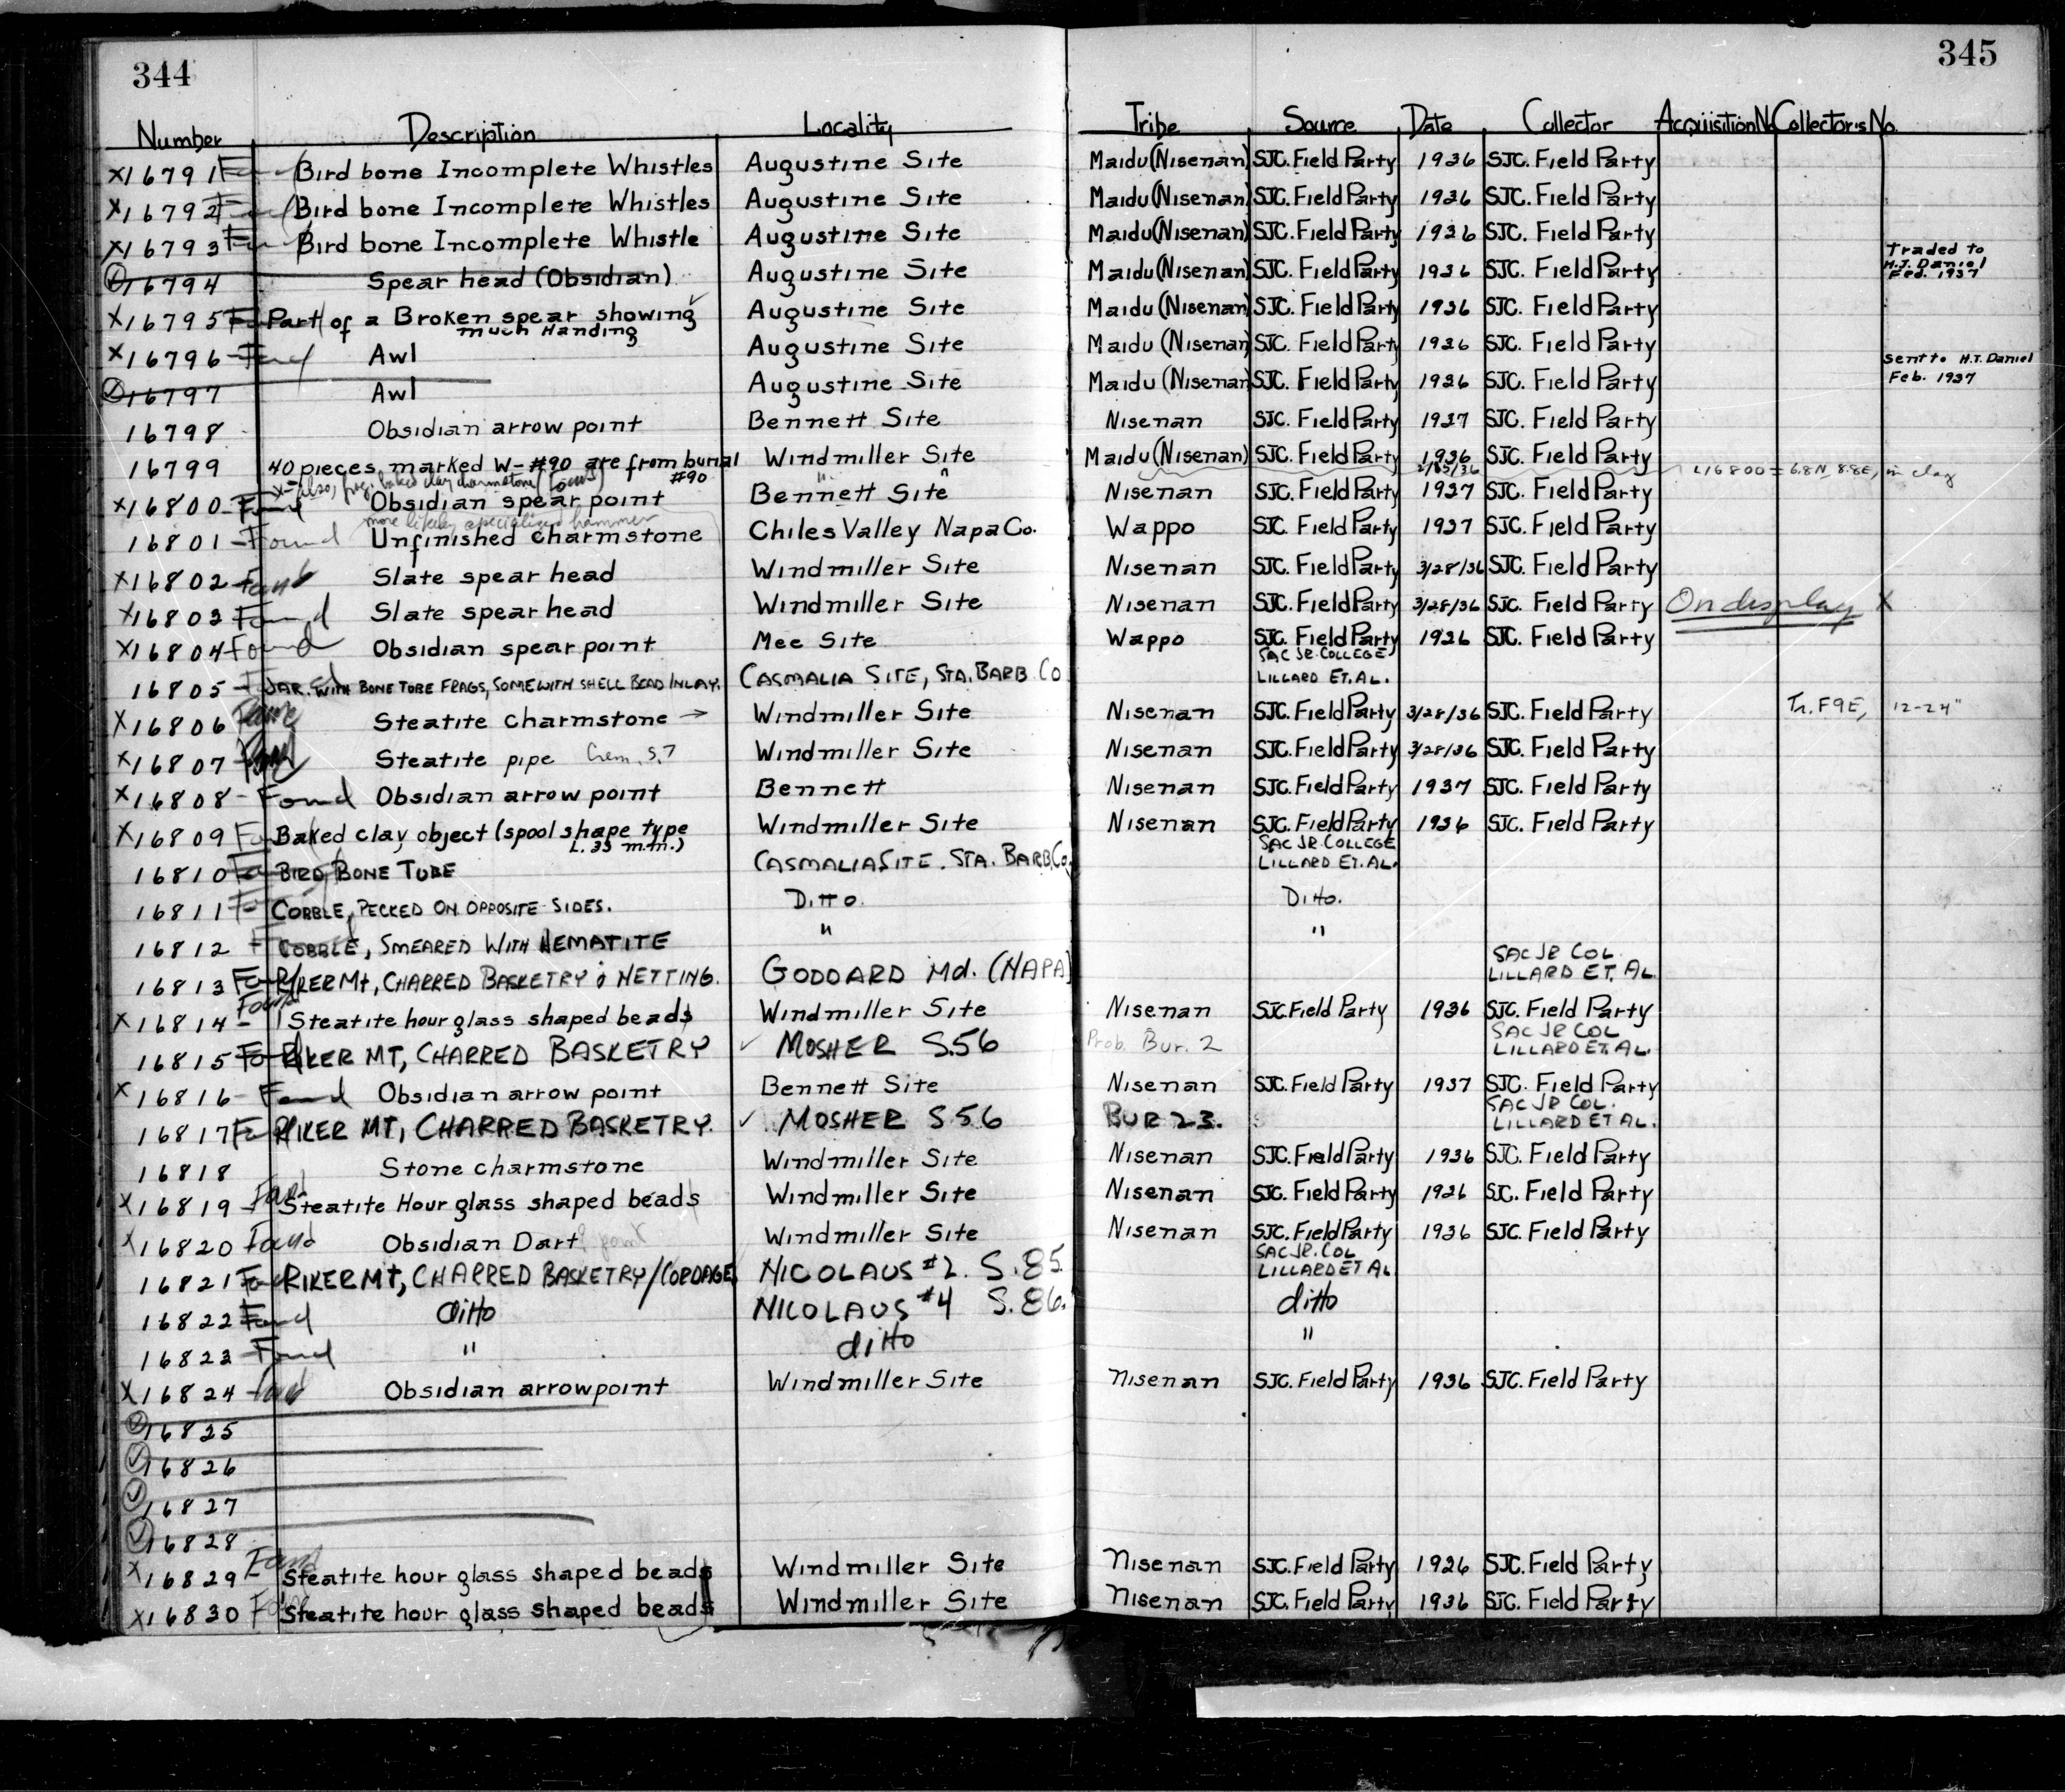 344
345
Number Description Locality Tribe Source Date Collector Acquisition No Collector's No.
X16791 Bird bone Incomplete Whistles Augustine Site Maidu (Nisenan) SJC. Field Party 1936 SJC. Field Party
X16792 Bird bone Incomplete Whistles Augustine Site Maidu (Nisenan) SJC. Field Party 1936 SJC. Field Party
X16793 Bird bone Incomplete Whistle Augustine Site Maidu (Nisenan) SJC. Field Party 1936 SJC. Field Party
16794 Spear head (Obsidian) Augustine Site Maidu (Nisenan) SJC. Field Party 1936 SJC. Field Party Traded to
H.J. Daniel
Feb. 1937
X16795 Part of a Broken spear showing Augustine Site Maidu (Nisenan) SJC. Field Party 1936 SJC. Field Party
much Handing
X16796 - Found Awl Augustine Site Maidu (Nisenan) SJC. Field Party 1936 SJC. Field Party
16797 Awl Augustine Site Maidu (Nisenan) SJC. Field Party 1936 SJC. Field Party sent to H.T. Daniel
Feb. 1937
16798 Obsidian arrow point Bennett Site Nisenan SJC. Field Party 1937 SJC. Field Party
16799 40 pieces marked W-#90 are from burial Windmiller Site Maidu (Nisenan) SJC. Field Party 1936 SJC. Field Party
#90
X - Also, frag. baked clay charmstone (Found)
X16800 - Found Obsidian spear point Bennett Site Nisenan SJC. Field Party 1937 SJC. Field Party 16800 = 6.8N, 8.8E, in clay
more likely specialized hammer
16801 - Found Unfinished charmstone Chiles Valley Napa Co. Wappo SJC. Field Party 1937 SJC. Field Party
X16802 - Found Slate spear head Windmiller Site Nisenan SJC. Field Party 3/28/36 SJC. Field Party
X16803 Found Slate spear head Windmiller Site Nisenan SJC. Field Party 3/28/36 SJC. Field Party On display X
X16804 - Found Obsidian spear point Mee Site Wappo SJC. Field Party 1936 SJC. Field Party
16805 - JAR. WITH BONE TUBE FRAGS, SOME WITH SHELL BEAD INLAY. CASMALIA SITE, STA. BARB. CO SAC JR. COLLEGE
LILLARD ET. AL.
X16806 Found Steatite charmstone → Windmiller Site Nisenan SJC. Field Party 3/28/36 SJC. Field Party Tr. F9E, 12-24"
X16807 Found Steatite pipe Crem. S.7 Windmiller Site Nisenan SJC. Field Party 3/28/36 SJC. Field Party
X16808 - Found Obsidian arrow point Bennett Nisenan SJC. Field Party 1937 SJC. Field Party
X16809 Baked clay object (spool shape type Windmiller Site Nisenan SJC. Field Party 1936 SJC. Field Party
L. 35 m.m.)
16810 BIRD BONE TUBE CASMALIA SITE. STA. BARB. Co. SAC JR. COLLEGE
LILLARD ET. AL.
16811 COBBLE, PECKED ON OPPOSITE SIDES. Ditto. Ditto.
16812 COBBLE, SMEARED WITH HEMATITE " "
16813 RIKER Mt, CHARRED BASKETRY & NETTING. GODDARD Md. (NAPA) SAC JR COL
LILLARD ET. AL
X16814 - Found Steatite hour glass shaped beads Windmiller Site Nisenan SJC Field Party 1936 SJC. Field Party
16815 RIKER MT, CHARRED BASKETRY ✓ MOSHER S.56 Prob. Bur. 2 SAC JR COL
LILLARD ET. AL.
X16816 - Found Obsidian arrow point Bennett Site Nisenan SJC. Field Party 1937 SJC. Field Party
16817 RIKER MT, CHARRED BASKETRY. ✓ MOSHER S56 BUR 23. SAC JR COL.
LILLARD ET AL.
16818 Stone charmstone Windmiller Site Nisenan SJC. Field Party 1936 SJC. Field Party
X16819 - Found Steatite Hour glass shaped beads Windmiller Site Nisenan SJC. Field Party 1936 SJC. Field Party
X16820 Found Obsidian Dart point Windmiller Site Nisenan SJC. Field Party 1936 SJC. Field Party
16821 RIKER MT, CHARRED BASKETRY/CORDAGE NICOLAUS #2. S.85. SAC JR. COL
LILLARD ET AL
16822 Found ditto NICOLAUS #4 S.86. ditto
16823 - Found " ditto "
X16824 - Found Obsidian arrowpoint Windmiller Site Nisenan SJC. Field Party 1936 SJC. Field Party
16825
16826
16827
16828
X16829 - Found Steatite hour glass shaped beads Windmiller Site Nisenan SJC. Field Party 1936 SJC. Field Party
X16830 Found Steatite hour glass shaped beads Windmiller Site Nisenan SJC. Field Party 1936 SJC. Field Party